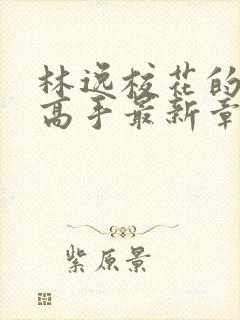 林逸校花的
高手最新章
紫原景